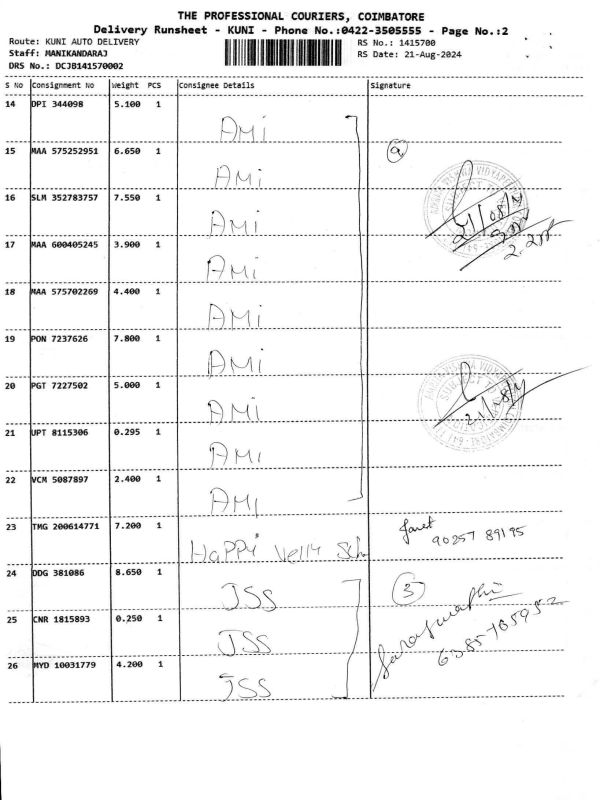 THE PROFESSIONAL COURIERS, COIMBATORE
Delivery Runsheet - KUNI - Phone No.:0422-3505555 - Page No.:2
Route: KUNI AUTO DELIVERY
RS No.: 1415700
Staff: MANIKANDARAJ
RS Date: 21-Aug-2024
DRS No.: DCJB141570002
S No Consignment No Weight PCS Consignee Details Signature
14 DPI 344098 5.100 1
AMi
15 MAA 575252951 6.650 1
AMi
16 SLM 352783757 7.550 1
AMi
17 MAA 600405245 3.900 1
AMi
18 MAA 575702269 4.400 1
AMi
19 PON 7237626 7.800 1
AMi
20 PGT 7227502 5.000 1
AMi
21 UPT 8115306 0.295 1
AMi
22 VCM 5087897 2.400 1
AMI
23 TMG 200614771 7.200 1
Happi Velly Sch
90257 89195
24 DDG 381086 8.650 1
3
JSS
25 CNR 1815893 0.250 1
JSS
26 MYD 10031779 4.200 1
JSS